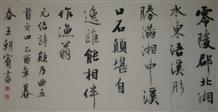 零陵郡北湘
水東浯溪形
勝滿湘中溪
口石顛堪自
逸誰能相伴
作漁翁
元結詩欸乃曲五
首之一乙酉年暮
春王朝賓書